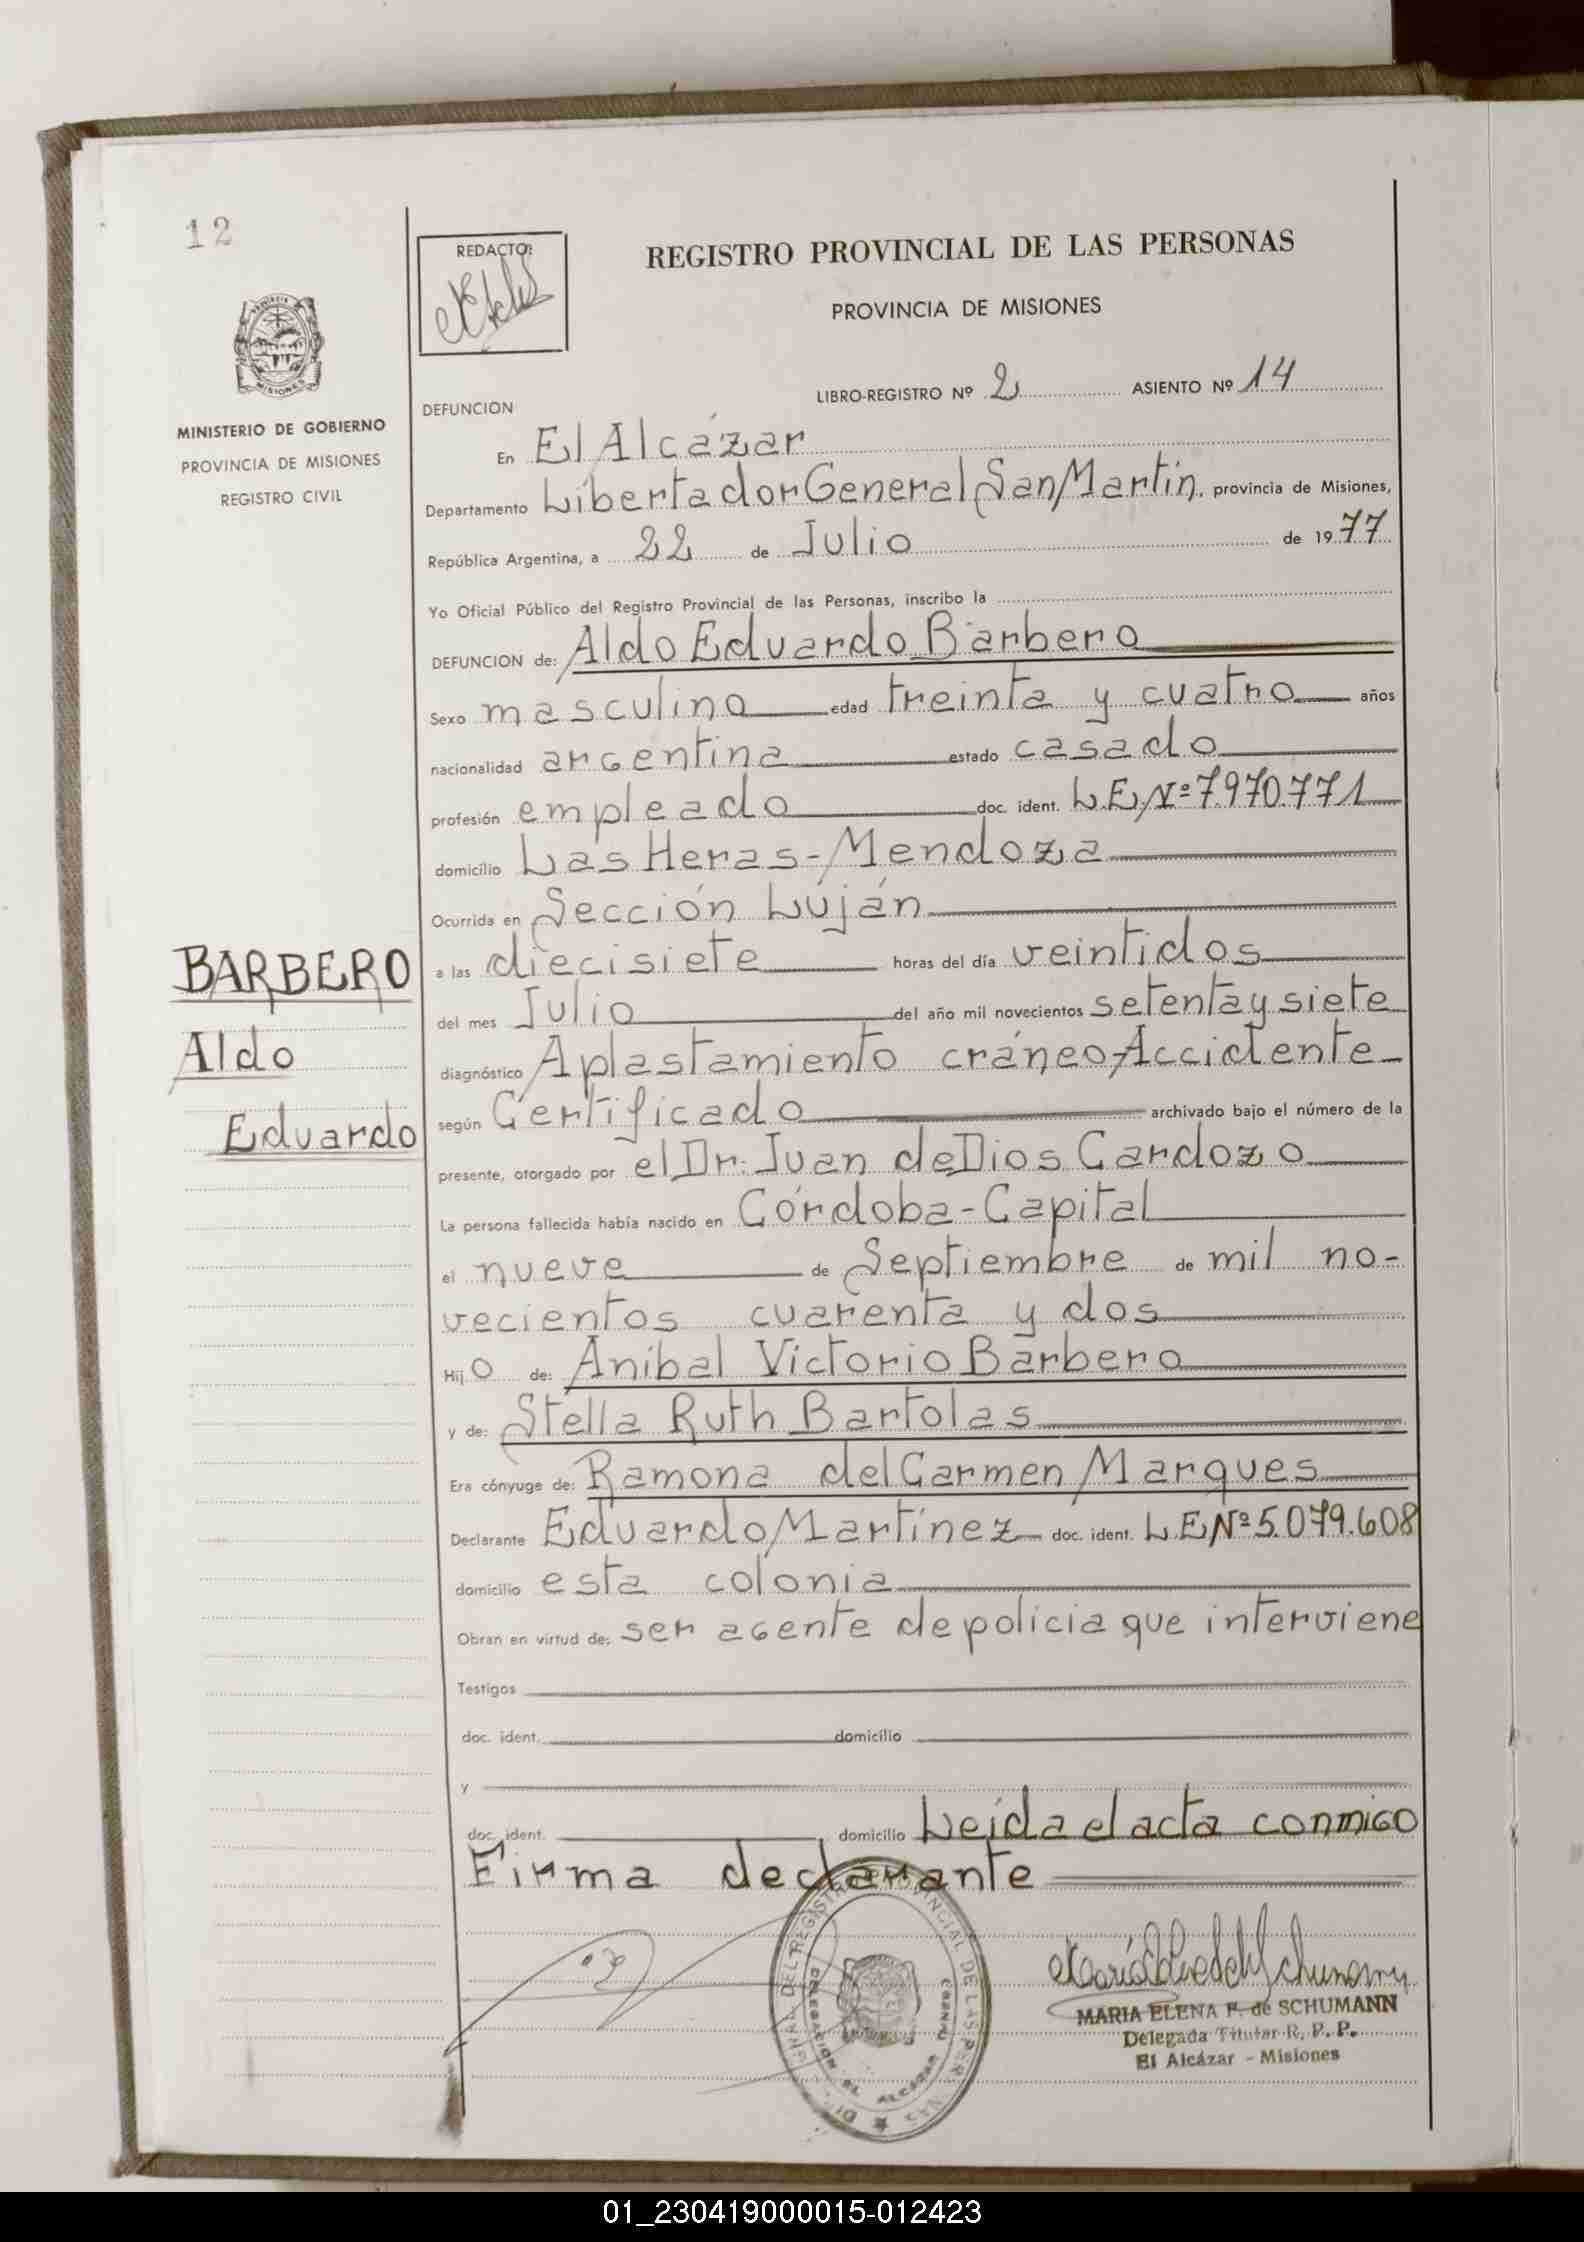 12
REDACTO:
REGISTRO PROVINCIAL DE LAS PERSONAS
PROVINCIA DE MISIONES
MINISTERIO DE GOBIERNO
PROVINCIA DE MISIONES
REGISTRO CIVIL
LIBRO-REGISTRO Nº 2 ASIENTO Nº 14
DEFUNCION
En El Alcázar
Departamento Libertador General San Martín, provincia de Misiones,
República Argentina, a 22 de Julio de 1977
Yo Oficial Público del Registro Provincial de las Personas, inscribo la
DEFUNCION de: Aldo Eduardo Barbero
Sexo masculino edad treinta y cuatro años
nacionalidad argentina estado casado
profesión empleado doc. ident. L.E.Nº 7.970.771
domicilio Las Heras-Mendoza
Ocurrida en Sección Luján
a las diecisiete horas del día veintidos
del mes Julio del año mil novecientos setenta y siete
diagnóstico Aplastamiento cráneo-Accidente
según Certificado archivado bajo el número de la
presente, otorgado por el Dr. Juan de Dios Cardozo
La persona fallecida había nacido en Córdoba-Capital
el nueve de Septiembre de mil no-
vecientos cuarenta y dos
Hijo de: Aníbal Victorio Barbero
y de: Stella Ruth Bartolas
Era cónyuge de: Ramona del Carmen Marques
Declarante Eduardo Martínez doc. ident. L.E.Nº 5.079.608
domicilio esta colonia
Obran en virtud de: ser agente de policia que interviene
Testigos
doc. ident. domicilio
y
doc. ident. domicilio Leída el acta conmigo
Firma declarante
BARBERO
Aldo
Eduardo
DEL REGISTRO PROVINCIAL DE LAS PERSONAS
DELEGACION EL ALCAZAR
MARIA ELENA F. de SCHUMANN
Delegada Titular R. P. P.
El Alcázar - Misiones
01_230419000015-012423